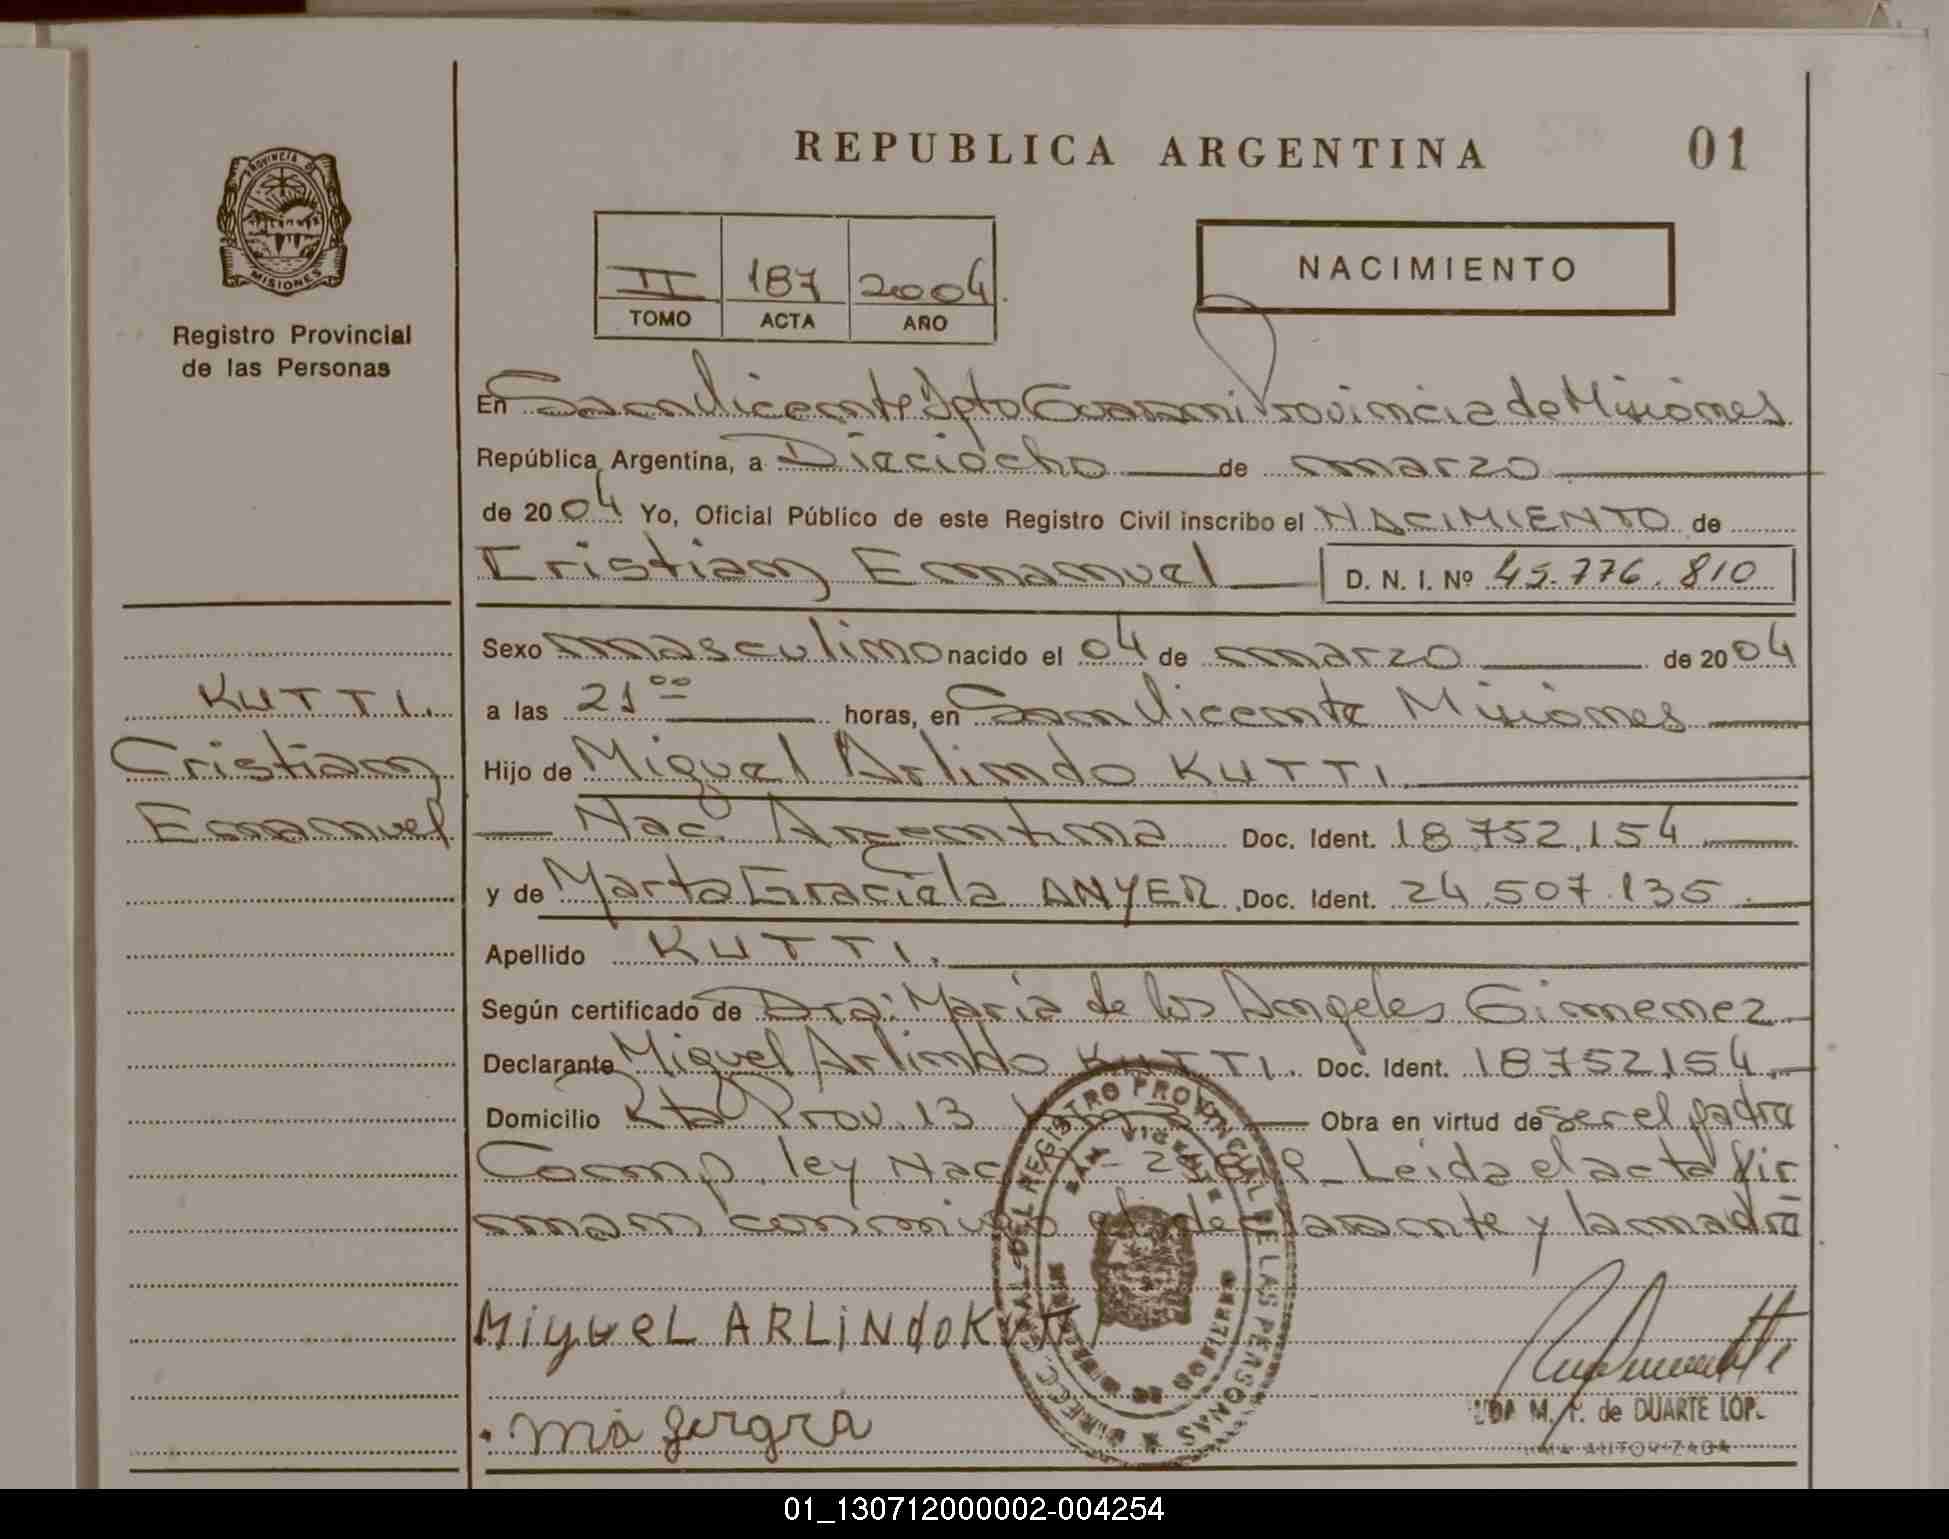 REPUBLICA ARGENTINA
01
PROVINCIA DE
MISIONES
Registro Provincial
de las Personas
II 187 2004
TOMO ACTA AÑO
NACIMIENTO
En San Vicente Dpto Guarani Provincia de Misiones
República Argentina, a Dieciocho de marzo
de 2004 Yo, Oficial Público de este Registro Civil inscribo el NACIMIENTO de
Cristian Emanuel
D. N. I. Nº 45.776.810
Sexo masculino nacido el 04 de marzo de 2004
KUTTI.
Cristian
Emanuel
a las 21 00 horas, en San Vicente Misiones
Hijo de Miguel Arlindo KUTTI
Nac. Argentina Doc. Ident. 18.752.154
y de Marta Graciela ANYER Doc. Ident. 24.507.135
Apellido KUTTI.
Según certificado de Dra: María de los Angeles Gimenez
Declarante Miguel Arlindo KUTTI. Doc. Ident. 18752154
Domicilio Rta Prov. 13 Obra en virtud de ser el padre
Comp. ley Nac Leida el acta fir
man conmigo el declarante y la madre
MiguEL ARLiNdo KUTTI
DEL REGISTRO PROVINCIAL DE LAS PERSONAS
SAN VICENTE
M. Y. de DUARTE LOP.
AUTORIZADA
01_130712000002-004254